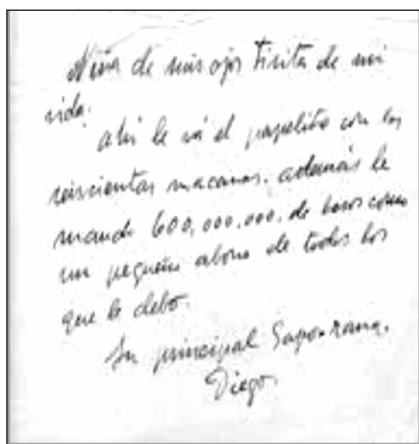 Niña de mis ojos Fisita de mi
vida.
ahi le vá el papelito con las
seiscientas macanas. además le
mando 600,000,000, de besos como
un pequeño abono de todos los
que le debo.
Su principal Sapo-rana.
Diego.